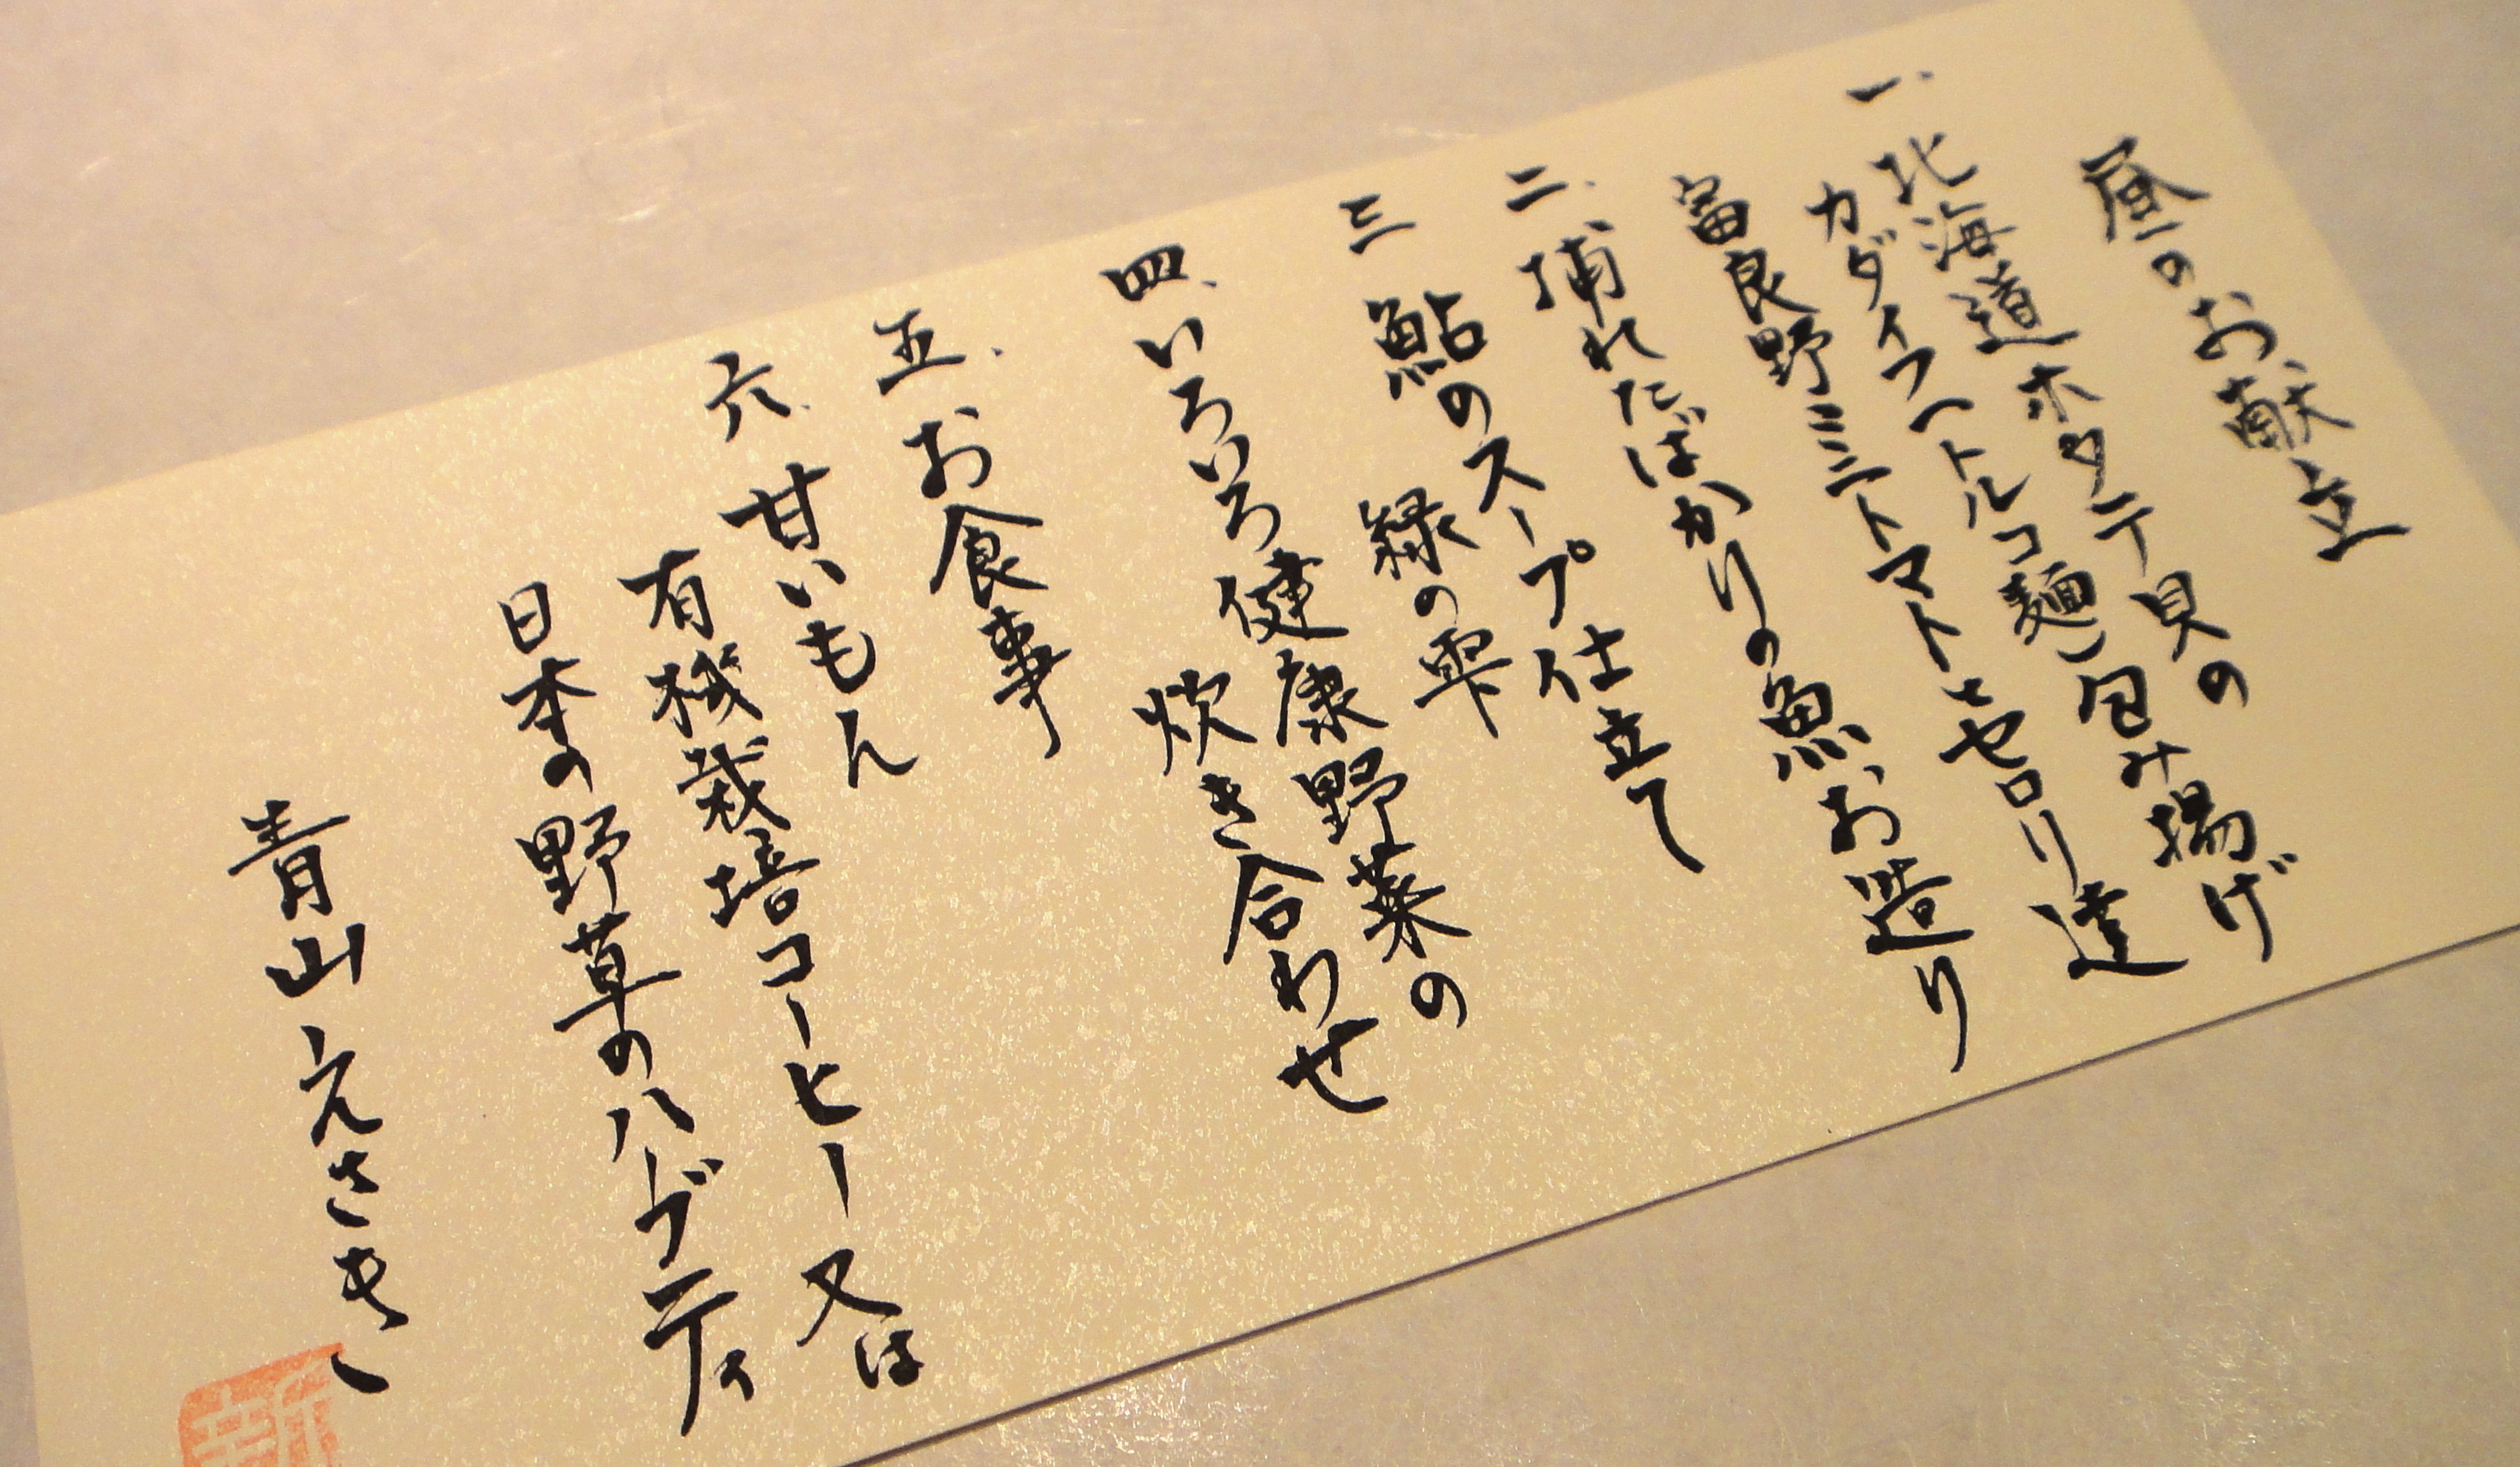 昼のお献立
一、北海道ホタテ貝の
カダイフ(トルコ麺)包み揚げ
富良野ミニトマトとセロリ達
二、捕れたばかりの魚お造り
三 鮎のスープ仕立て
緑の雫
四、いろいろ健康野菜の
炊き合わせ
五、お食事
六、甘いもん
有機栽培コーヒー又は
日本の野草のハブティ
青山えさき